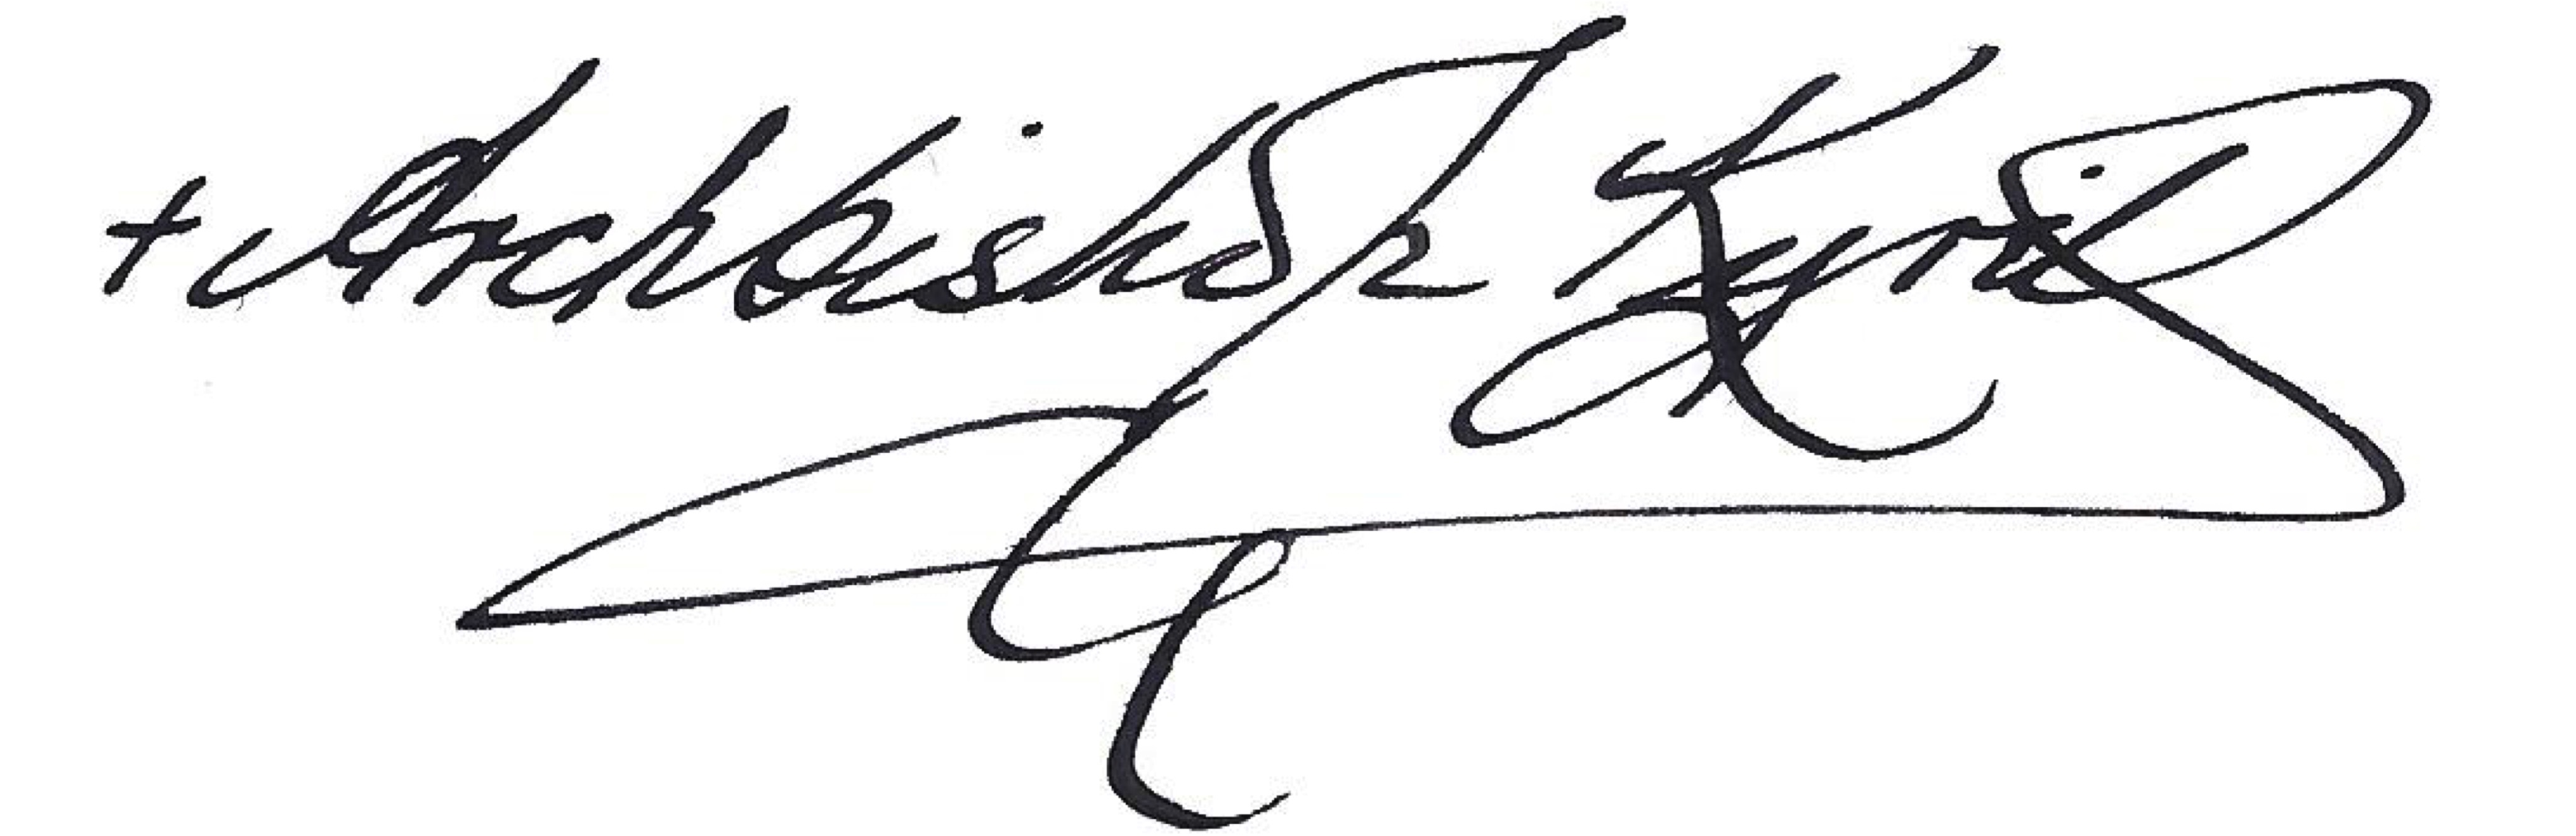 + Archbishop Kyrill